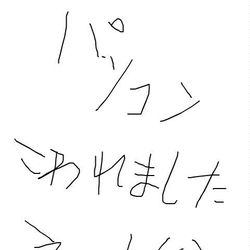 パソコン
こわれました